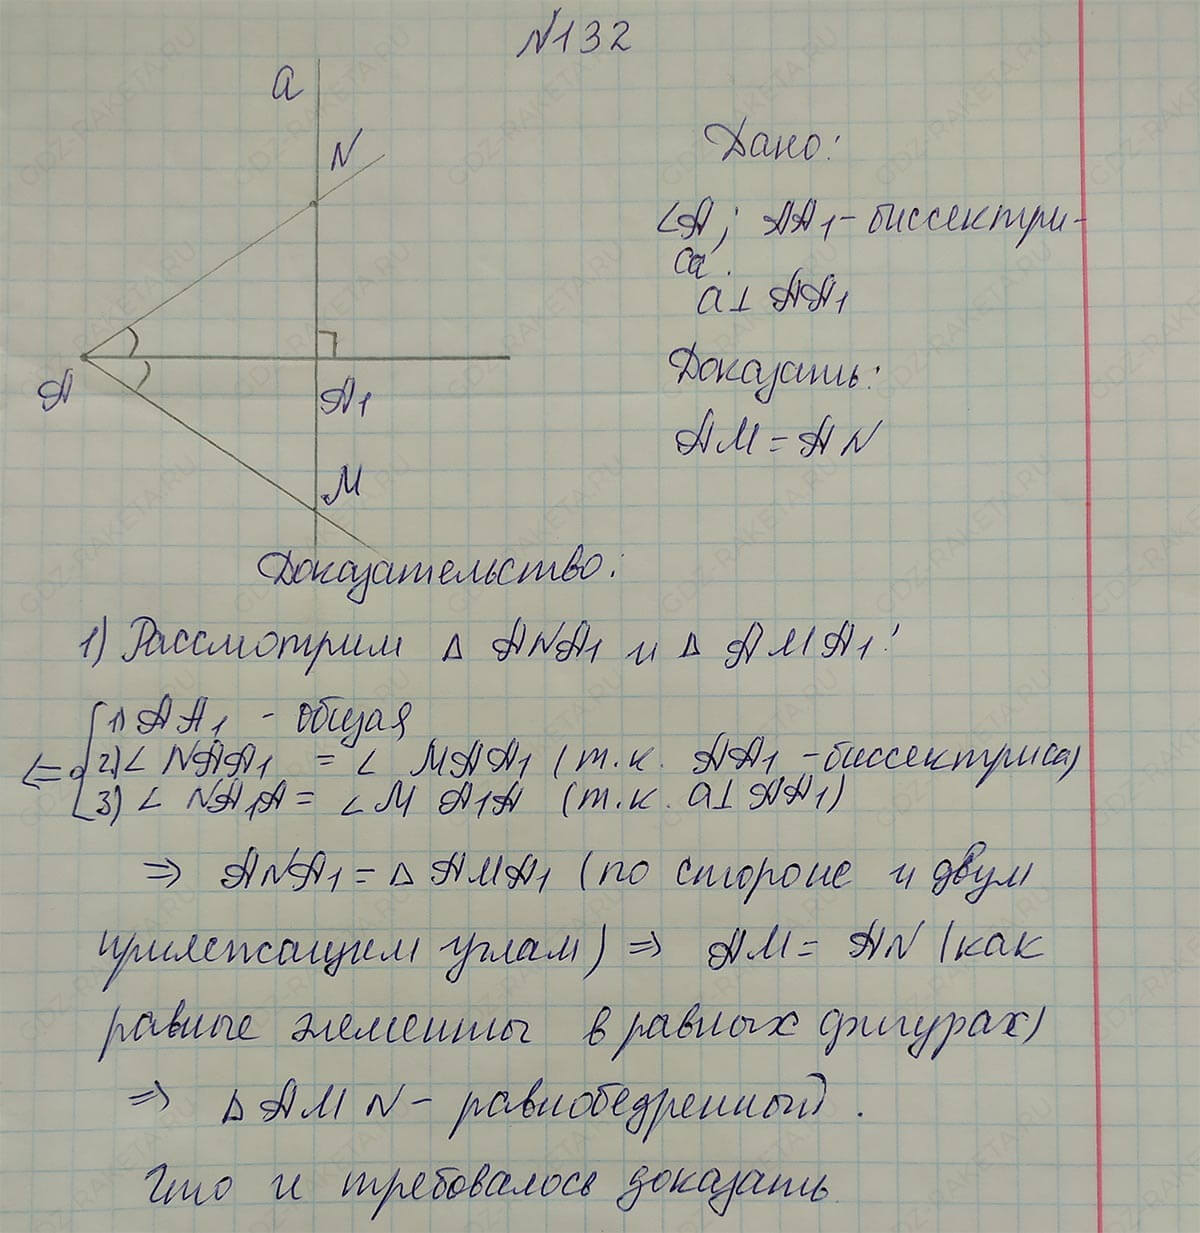 №132
a
N
A
A1
M
Дано:
∠A; AA1 - биссектри-
са.
a⊥ AA1
Доказать:
AM = AN
Доказательство:
1) Рассмотрим Δ ANA1 и Δ AMA1:
1) AA1 - общая
2) ∠ NAA1 = ∠ MAA1 (т.к. AA1 - биссектриса)
3) ∠ NA1A = ∠M A1A (т.к. a⊥AA1)
⇒ ANA1 = Δ AMA1 (по стороне и двум
прилежащим углам) ⇒ AM = AN (как
равные элементы в равных фигурах)
⇒ ΔAMN - равнобедренный.
Что и требовалось доказать
GDZ-RAKETA.RU